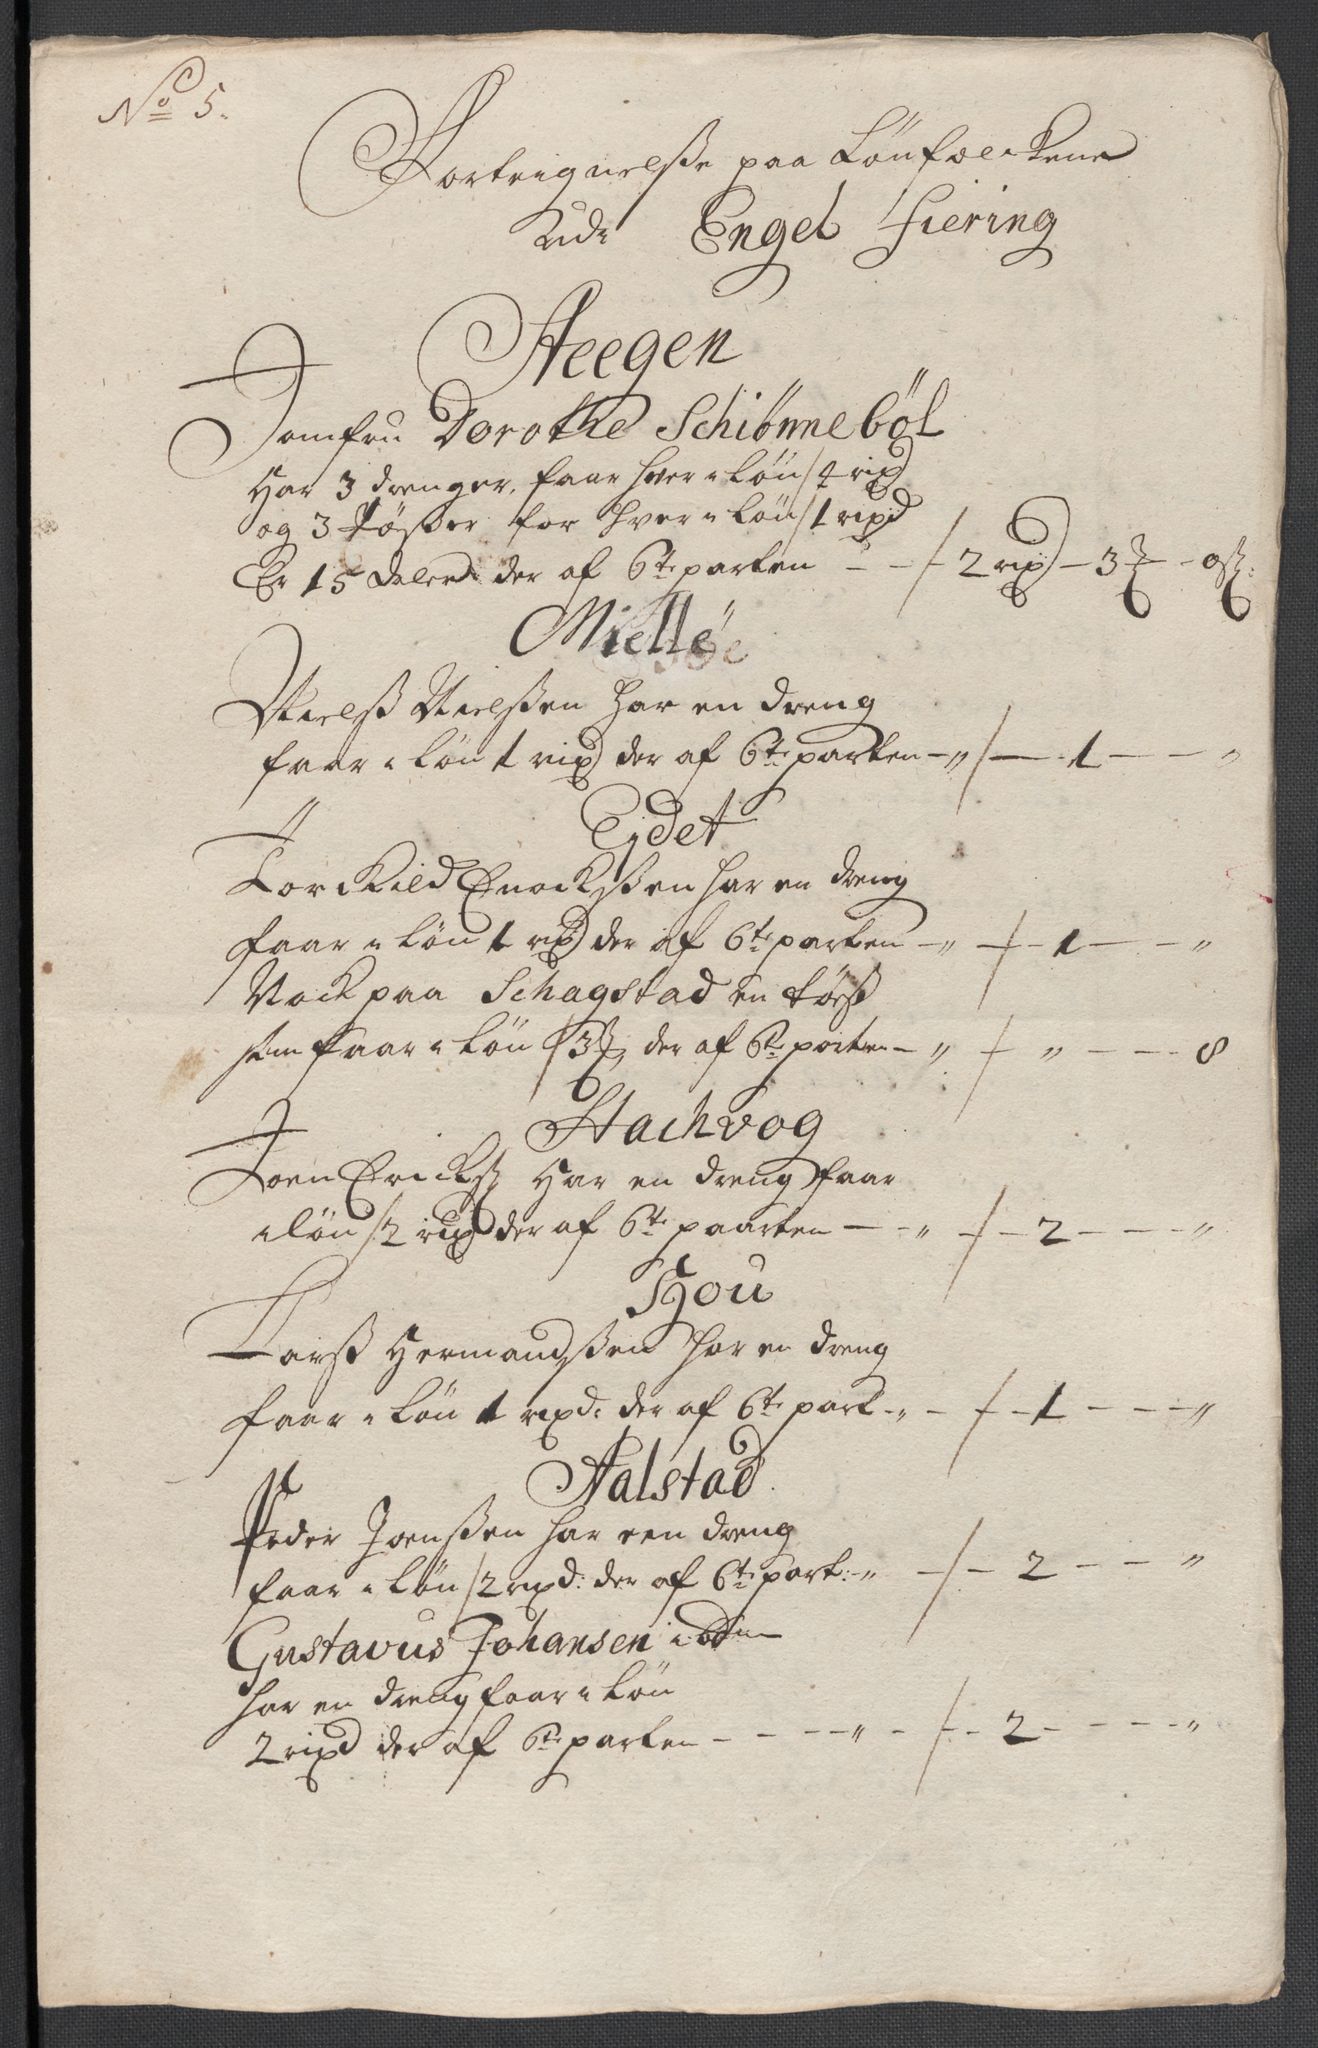 No 5.
Forteignelsse paa Lønfolckene
udi Engel fiering
Steegen
Jomfru Dorothe Schiönneböl
Har 3 drenger, faar hver i Løn 4 rixd
og 3 tøsser for hver i Løn 1 rixd
Er 15 daler der af 6te parten - - 2 rixd - 3 ℔ - 0 ß:
Mielløe
Nielß Nielßen har en dreng
faar i løn 1 rixd der af 6te parten - " - 1 - - "
Ejdet
Torckild Enockßen har en dreng
faar i løn 1 rixd der af 6te parten - " - 1 - - "
Nock paa Schagstad en tøsß
som faar i Løn 3 ℔ der af 6te parten - " - " - - - 8
Stachvog
Joen Erickß Har en dreng faar
i løn 2 rixd der af 6te paarten - - " - 2 - - - "
Sjou
Larß Hermandßen har en dreng
faar i Løn 1 rixd: der af 6te part - " - - 1 - - - "
Aalstad
Peder Joenßen har een dreng
faar i Løn 2 rixd: der af 6te part: - " - - 2 - - - "
Gustavus Johansen ibdm
har en dreng faar i Løn
2 rixd der af 6te parten - - - - " - - - 2 - - - - "